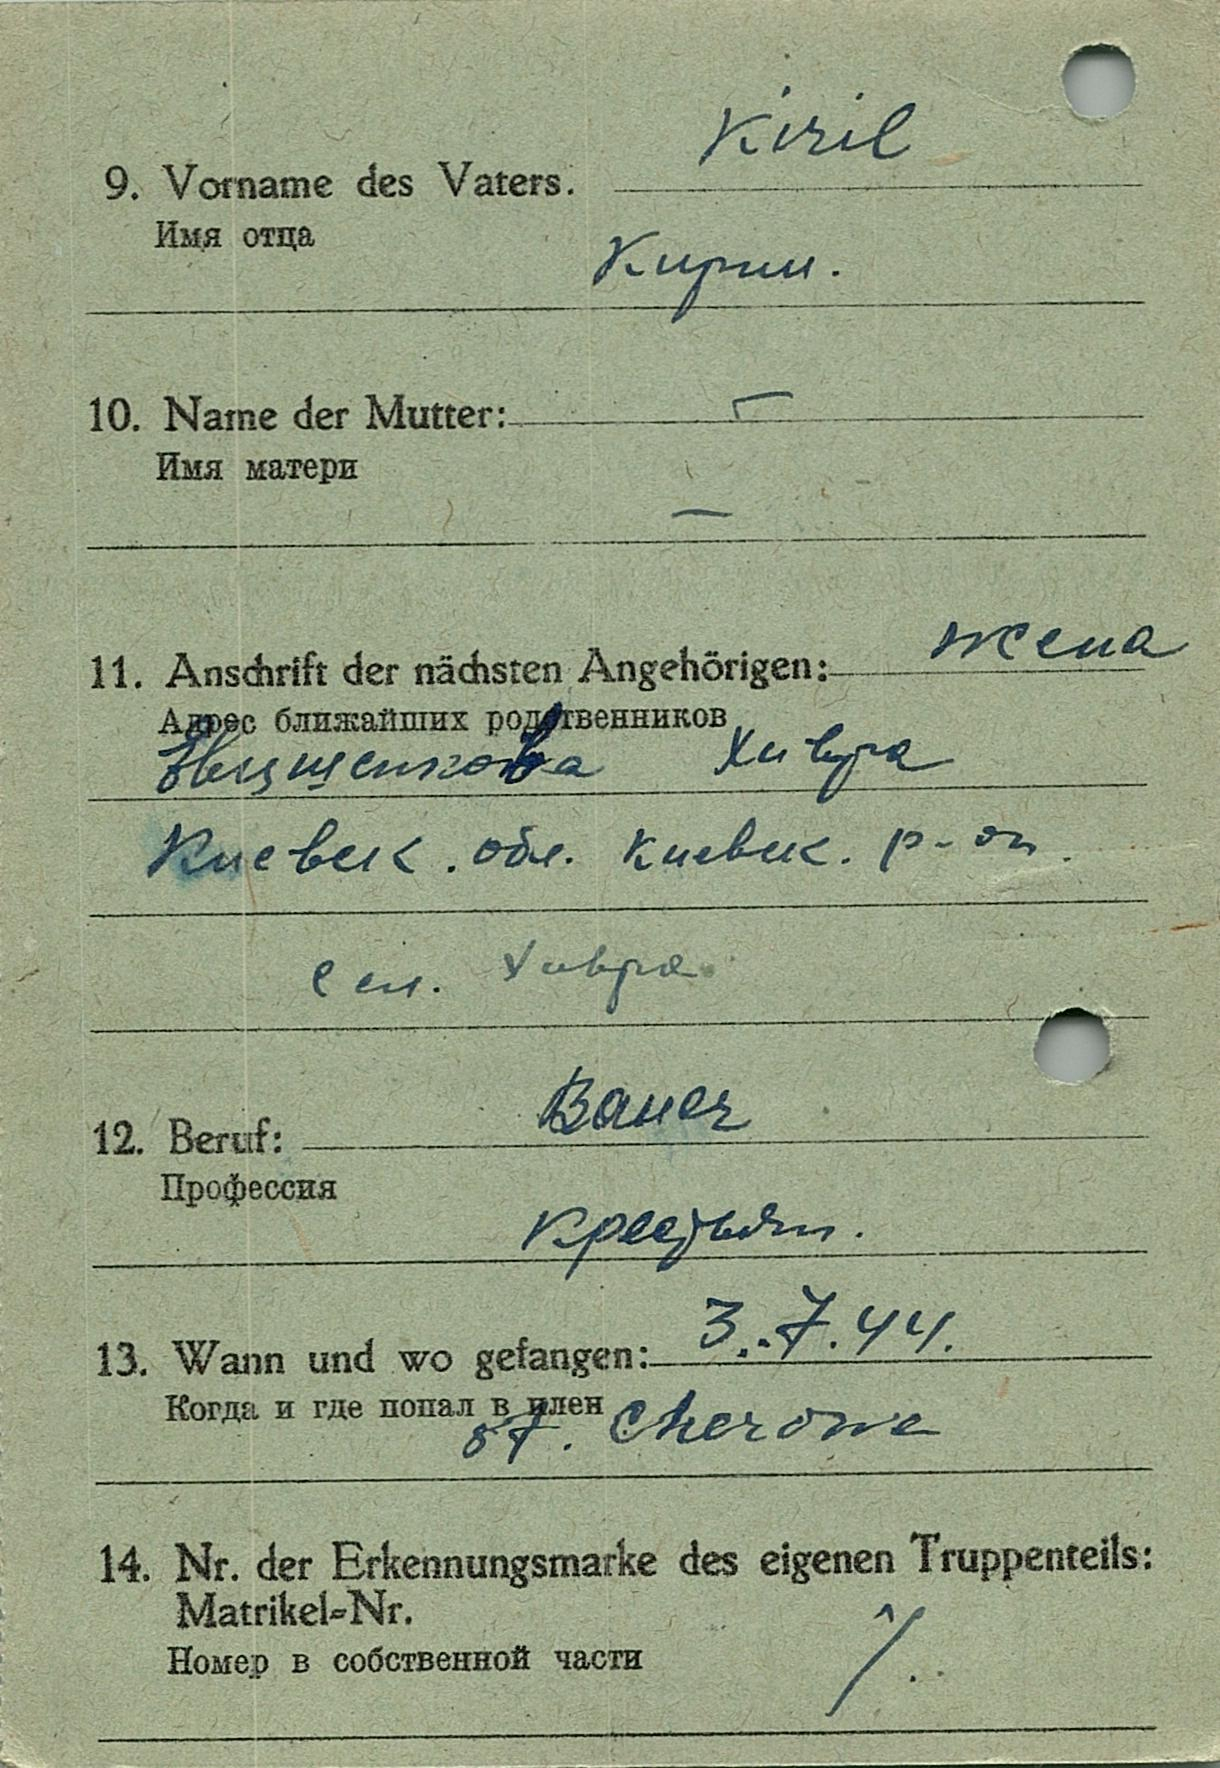 Kiril
9. Vorname des Vaters.
Имя отца
Кирил.
10. Name der Mutter: —
Имя матери
—
11. Anschrift der nächsten Angehörigen: жена
Адрес ближайших родственников
Хивра
Киевск. обл. Киевск. р-он.
сел. Хивра
12. Beruf: Bauer
Профессия
Крестьян.
13. Wann und wo gefangen: 3.7.44.
Когда и где попал в плен
14. Nr. der Erkennungsmarke des eigenen Truppenteils:
Matrikel-Nr.
Номер в собственной части